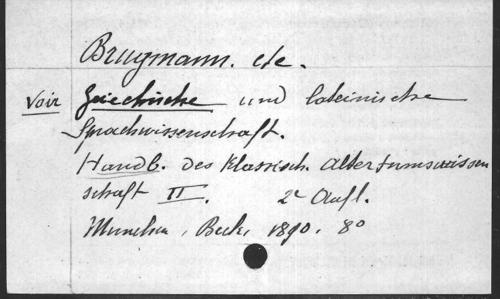 Brugmann. etc.
voir Griechische und lateinische
Sprachwissenschaft.
Handb. des klassisch. Altertumswissen
schaft II. 2e Aufl.
Munchen, Beck, 1890, 8o